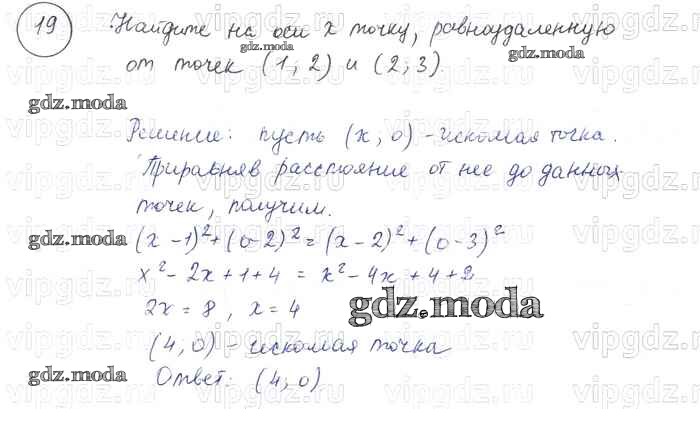 19 Найдите на оси x точку, равноудаленную
от точек (1; 2) и (2; 3).
Решение: пусть (x, 0) - искомая точка.
Приравняв расстояние от нее до данных
точек, получим.
(x - 1)² + (0 - 2)² = (x - 2)² + (0 - 3)²
x² - 2x + 1 + 4 = x² - 4x + 4 + 9
2x = 8, x = 4
(4, 0) - искомая точка
Ответ: (4, 0)
gdz.moda
gdz.moda
gdz.moda
gdz.moda
gdz.moda
gdz.moda
gdz.moda
vipgdz.ru